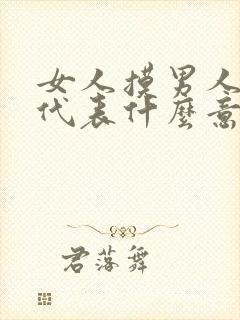 女人摸男人
代表什麼意
君落舞